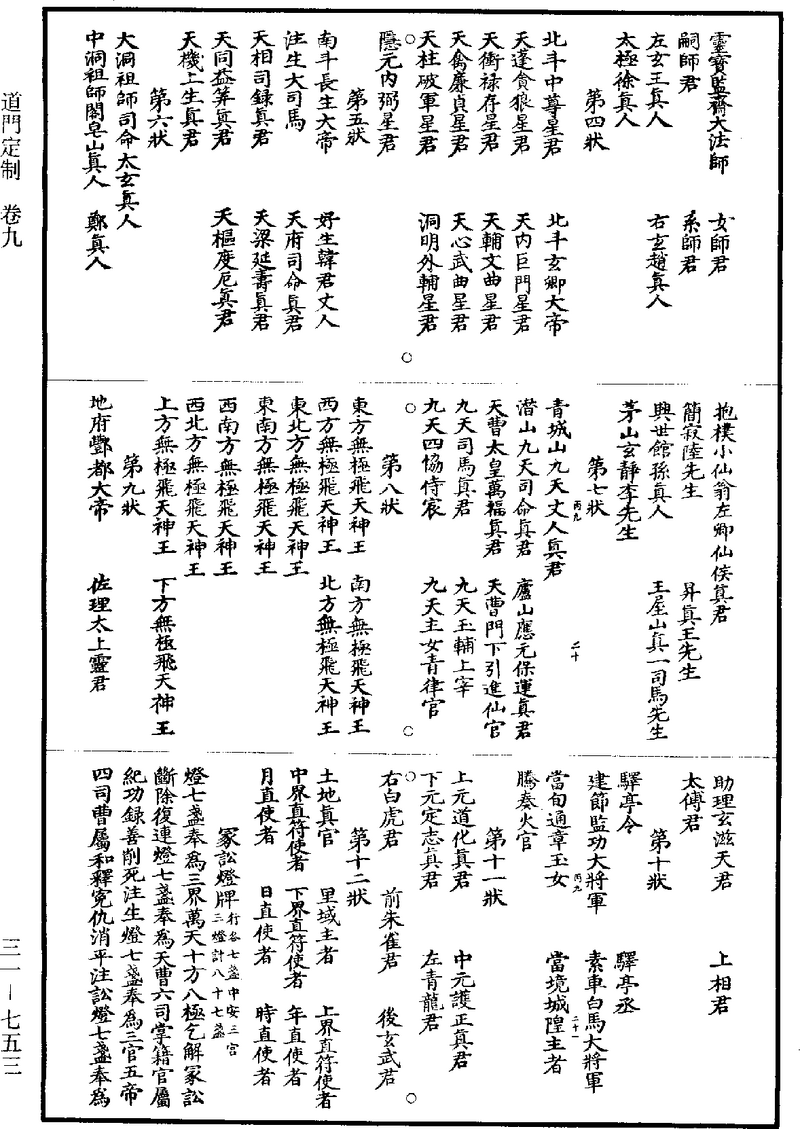 靈寶監齋大法師　女師君
嗣師君　系師君
左玄王真人　右玄趙真人
太極徐真人
第四狀
北斗中尊星君　北斗玄卿大帝
天蓬貪狼星君　天內巨門星君
天衝祿存星君　天輔文曲星君
天禽廉貞星君　天心武曲星君
天柱破軍星君　洞明外輔星君
隱元內弼星君
第五狀
南斗長生大帝　好生韓君丈人
注生大司馬　天府司命真君
天相司錄真君　天梁延壽真君
天同益筭真君　天樞度厄真君
天機上生真君
第六狀
大洞祖師司命太玄真人
中洞祖師閤皂山真人　鄭真人
抱樸小仙翁左卿仙侯真君
簡寂陸先生　昇真王先生
興世館孫真人　王屋山真一司馬先生
茅山玄靜李先生
第七狀
丙九
二十
青城山九天丈人真君
潛山九天司命真君　廬山應元保運真君
天曹太皇萬福真君　天曹門下引進仙官
九天司馬真君　九天玉輔上宰
九天四協侍宸　九天主女青律官
第八狀
東方無極飛天神王　南方無極飛天神王
西方無極飛天神王　北方無極飛天神王
東北方無極飛天神王
東南方無極飛天神王
西南方無極飛天神王
西北方無極飛天神王
上方無極飛天神王　下方無極飛天神王
第九狀
地府酆都大帝　佐理太上靈君
助理玄滋天君　上相君
太傅君
第十狀
驛亭令　驛亭丞
建節監功大將軍　素車白馬大將軍
丙九
二十一
當旬通章玉女　當境城隍主者
騰奏火官
第十一狀
上元道化真君　中元護正真君
下元定志真君　左青龍君
右白虎君　前朱雀君　後玄武君
第十二狀
土地真官　里域主者　上界直符使者
中界直符使者　下界直符使者　年直使者
月直使者　日直使者　時直使者
冢訟燈牌　行各七盞中安三官三燈計八十七盞
燈七盞奉為三界萬天十方八極乞解冢訟
斷除復連燈七盞奉為天曹六司掌籍官屬
紀功錄善削死注生燈七盞奉為三官五帝
四司曹屬和釋冤仇消平注訟燈七盞奉為
道門定制　卷九
三一—七五三